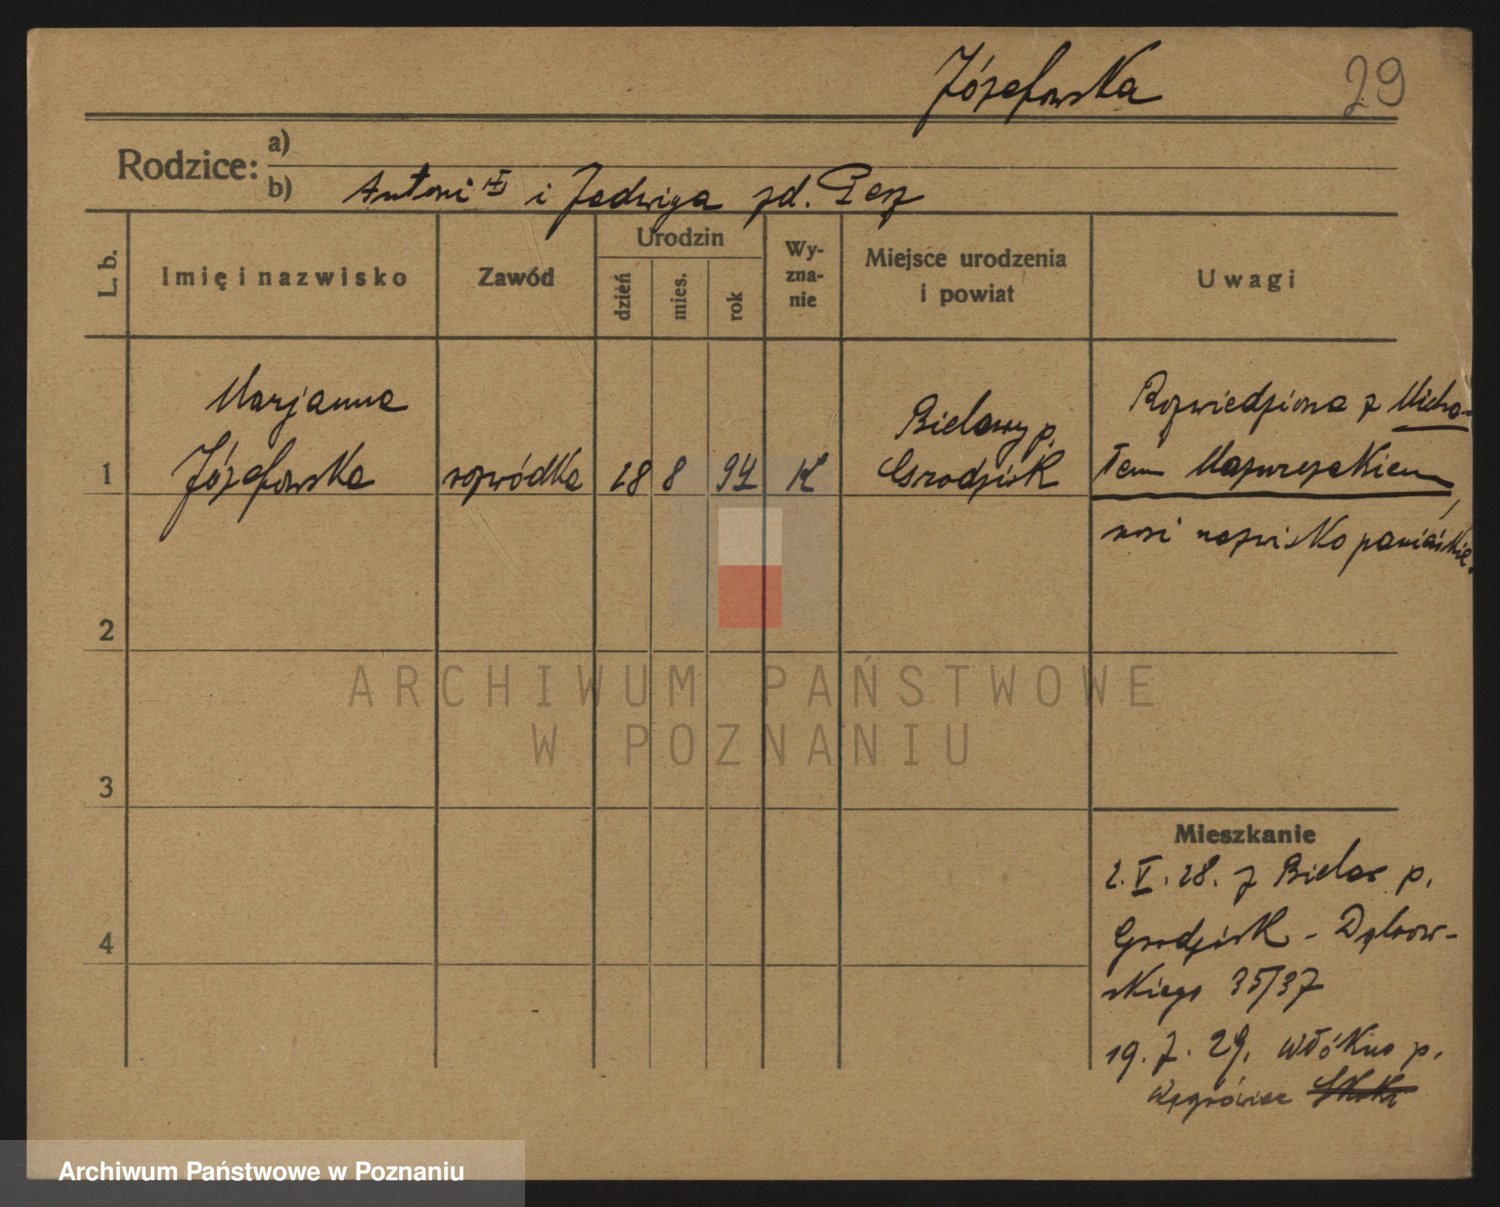 Józefowska
29
Rodzice:
a)
b) Antoni i Jadwiga zd.
L. b.
Imię i nazwisko
Zawód
Urodzin
dzień
mies.
rok
Wy-
zna-
nie
Miejsce urodzenia
i powiat
Uwagi
Marjanna
Józefowska
1
rozwódka
28
8
94
K
Bielawy p.
Grodzisk
Rozwiedziona z Micha-
łem Mazurczakiem,
nosi nazwisko panieńskie.
2
3
4
ARCHIWUM PAŃSTWOWE
W POZNANIU
Mieszkanie
2. V. 28. z Bielaw p.
Grodzisk - Dąbrow-
skiego 35/37
19. 7. 29. Włókno p.
Wągrówiec Skoki
Archiwum Państwowe w Poznaniu